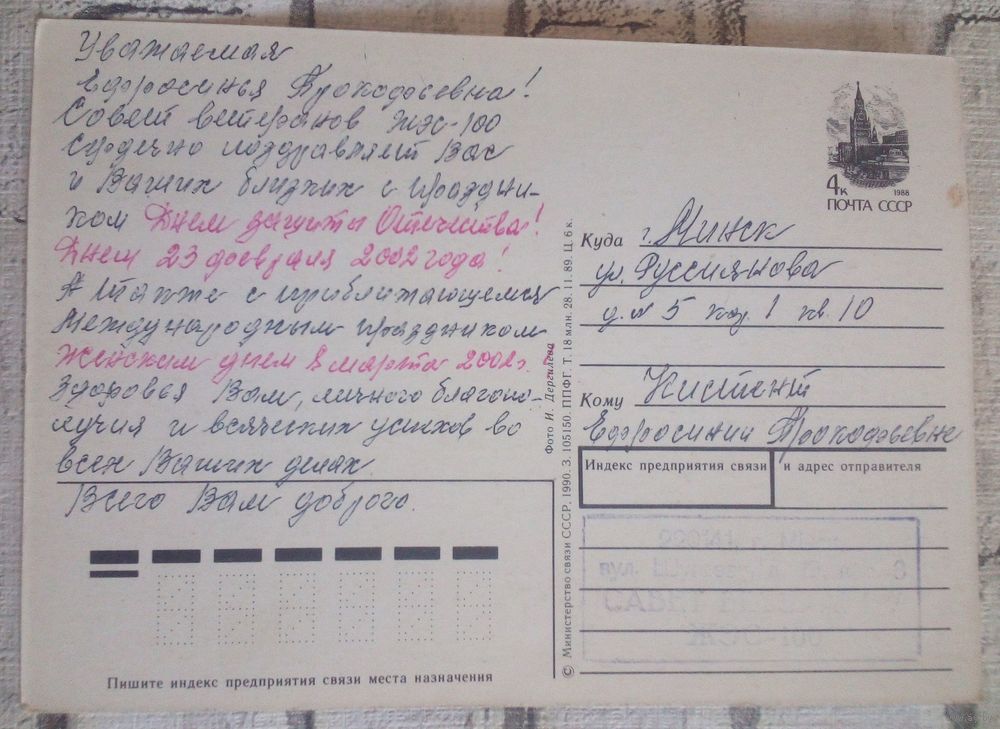 Уважаемая
Ефросинья Прокофьевна!
Совет ветеранов ЖЭС-100
сердечно поздравляет Вас
и Ваших близких с праздни-
ком Днем защиты Отечества!
Днем 23 февраля 2002 года!
А также с приближающемся
Международным праздником
Женским днем 8 марта 2002г.
Здоровья Вам, личного благопо-
лучия и всяческих успехов во
всех Ваших делах
Всего Вам доброго.
Пишите индекс предприятия связи места назначения
© Министерство связи СССР. 1990. З. 105150. ППФГ. Т. 18 млн. 28. 11. 89. Ц. 6 к.
Фото И. Дергилева
4к
1988
ПОЧТА СССР
Куда г. Минск
ул. Руссиянова
д. № 5 кор. 1 кв. 10
Кому Кистент
Ефросинии Прокофьевне
Индекс предприятия связи и адрес отправителя
вул.
САВЕТ
ЖЭС-100